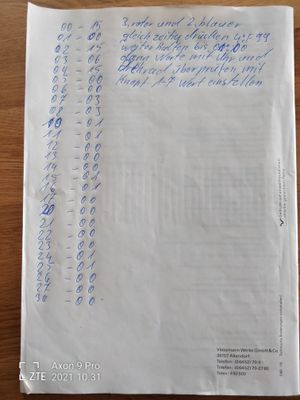 00 - 15
01 - 00
02 - 15
03 - 06
04 - 15
05 - 00
06 - 00
07 - 03
08 - 03
10 - 01
11 - 01
12 - 00
13 - 00
14 - 00
15 - 01
16 - 01
17 - 00
20 - 00
21 - 00
22 - 00
23 - 00
24 - 01
25 - 01
26 - 00
27 - 00
30 - 00
3. roter und 2. blauer
gleichzeitig drücken
weiter halten bis
dann Werte mit Uhr und
überprüfen, mit
Knopf 1-7 Wert einstellen
Viessmann Werke GmbH & Co
35107 Allendorf
Telefon: (06452) 70-0
Telefax: (06452) 70-2780
Axon 9 Pro
ZTE 2021.10.31